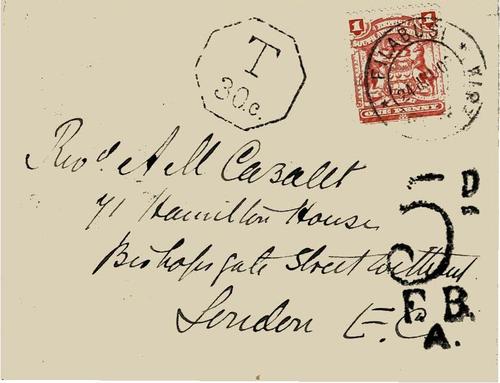 T
30c.
1 1
BRITISH
SOUTH AFRICA
ONE PENNY
Revd. A M Cazalet
71 Hamilton House
Bishopsgate Street without
London E.C.
5 D
F.B.
A.